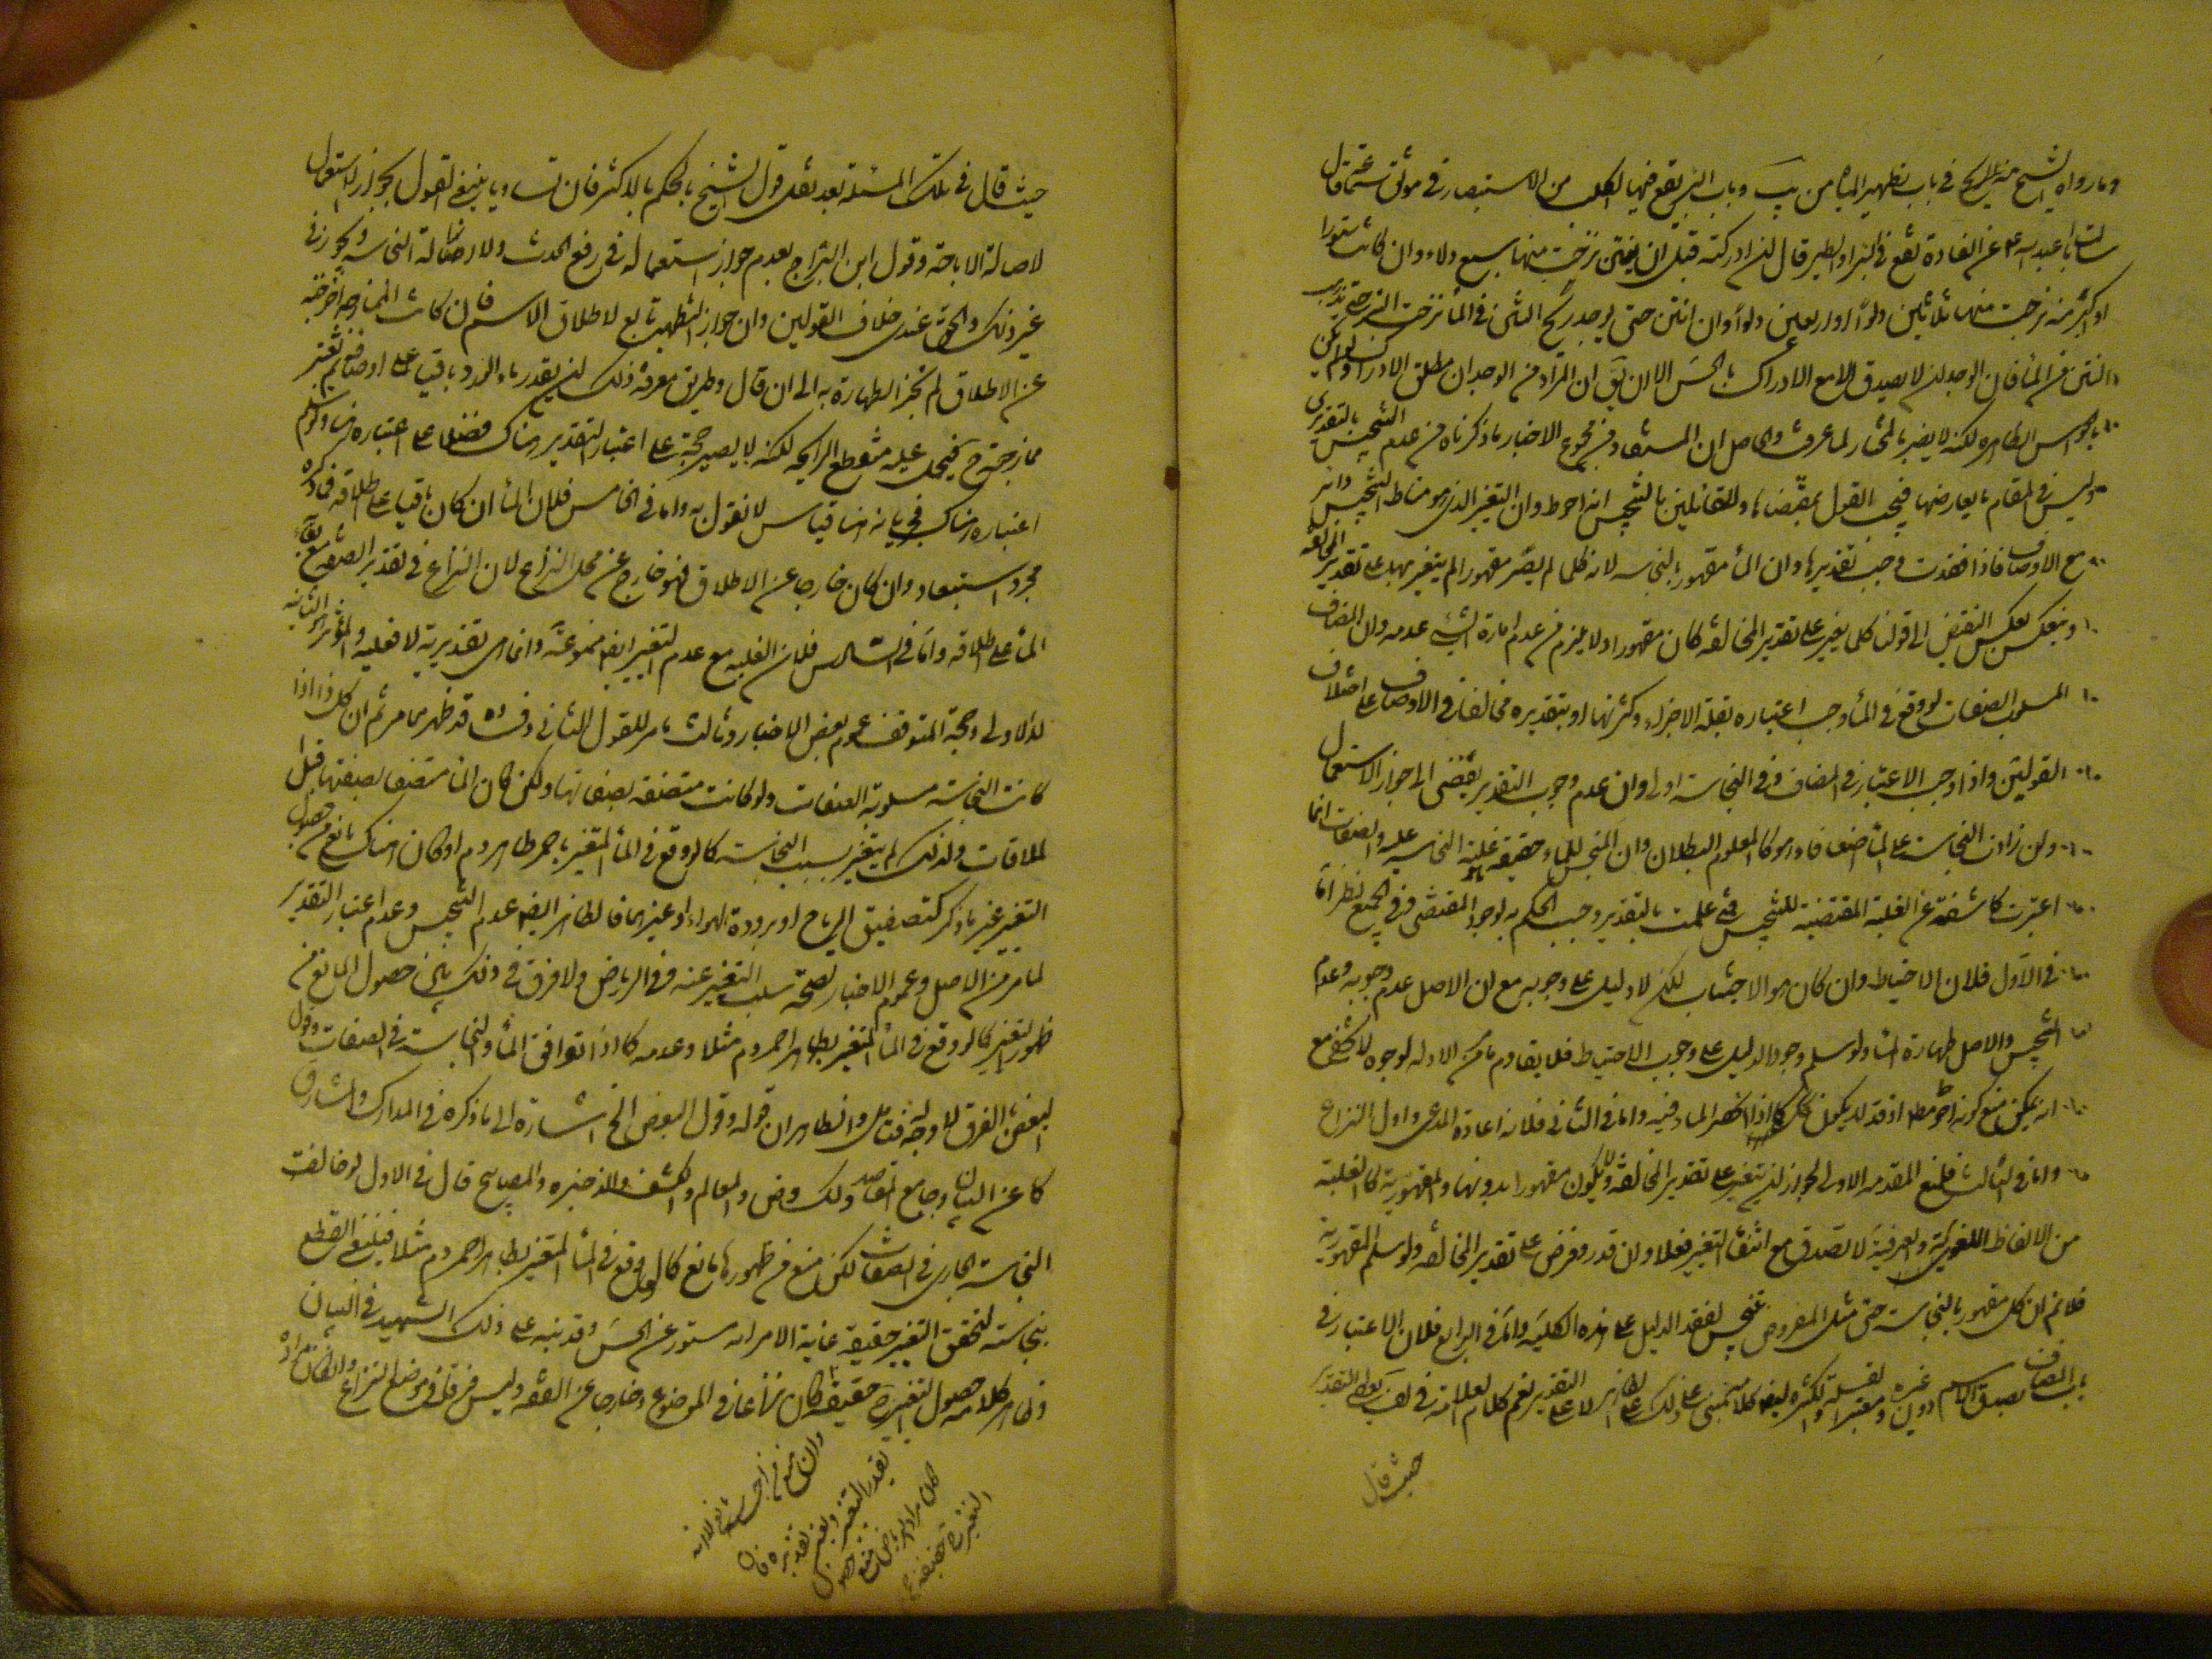 وما رواه الشيخ في باب تطهير المياه من يب وباب البئر يقع فيها الكلب من الاستبصار في موثق سماعة قال
سالت ابا عبد الله ع عن الفارة تقع في البئر او الطير قال ان ادركته قبل ان ينتن نزحت منها سبع دلاء وان كانت سنورا
او اكبر منه نزحت منها ثلاثين دلوا او اربعين دلوا وان انتن حتى يوجد ريح النتن في الماء نزحت البئر حتى يذهب
النتن من الماء فان الوجدان لا يصدق الا مع الادراك بالحس الا ان يق ان المراد من الوجدان مطلق الادراك ولو لم يكن
بالحواس الظاهره لكنه لا يضر بالمختار لما عرفت والحاصل ان المستفاد من مجموع الاخبار ما ذكرناه من عدم التنجيس بالتقديرى
وليس في المقام ما يعارضها فيجب القول بمقتضاها وللقائلين بالتنجيس انه احوط وان التغير الذى هو مناط التنجيس دائر
مع الاوصاف فاذا فقدت وجب تقديرها وان الماء مقهور بالنجاسه لانه كلما لم يصر مقهورا لم يتغير بها على تقدير المخالفه
وينعكس بعكس النقيض الى قولنا كلما تغير على تقدير المخالفه كان مقهورا ولا يلزم من عدم امارة الشىء عدمه وان المضاف
المسلوب الصفات لو وقع في الماء وجب اعتباره بقلة الاجزاء وكثرتها او بتقديره مخالفا في الاوصاف على اختلاف
القولين واذا وجب الاعتبار في المضاف ففي النجاسة اولى وان عدم وجوب التقدير يفضى الى جواز الاستعمال
وان زادت النجاسة على الماء اضعافا وهو كالمعلوم البطلان وان المنجس للماء حقيقة غلبة النجاسه عليه والصفات انما
اعتبرت كاشفة عن الغلبة المقتضية للتنجيس فمتى علمت بالتقدير وجب الحكم به لوجود المقتضى وفي الجميع نظر اما
في الاول فلان الاحتياط وان كان هو الاجتناب لكن لا دليل على وجوبه مع ان الاصل عدم وجوبه وعدم
التنجيس والاصل طهارة الماء ولو سلم وجود الدليل على وجوب الاحتياط فلا يقاوم ما مر من الادلة لوجوه لا تخفى مع
انه يمكن منع كونه احوط مط اذ قد لا يكون كك كما اذا انحصر الماء فيه واما في الثاني فلانه اعادة المدعى واول النزاع
واما في الثالث فلمنع المقدمه الاولى لجواز ان يتغير على تقدير المخالفة ولا يكون مقهورا بدونها والمقهورية كالغلبة
من الالفاظ اللغوية والعرفية لا تصدق مع انتفاء التغير فعلا وان قدر وفرض على تقدير المخالفه ولو سلم المقهورية
فلا نم ان كل مقهور بالنجاسة حتى مثل المفروض تنجس لفقد الدليل على هذه الكلية واما في الرابع فلان الاعتبار في
باب المضاف بصدق الاسم دون غيره
حيث قال
حيث قال في تلك المسئلة بعد نقل قول الشيخ بالحكم بالاكثر فان تساويا ينبغي القول بجواز استعماله
لاصالة الاباحة وقول ابن البراج بعدم جواز استعماله في رفع الحدث ولا ازالة النجاسه ويجوز في
غير ذلك والحق عندى خلاف القولين وان جواز التطهير تابع لاطلاق الاسم فان كانت الممازجه اخرجته
عن الاطلاق لم تجز الطهارة به الى ان قال وطريق معرفة ذلك ان يقدر ماء الورد باقيا على اوصافه ثم تعتبر
ممازجته ح فيحمل عليه منقطع الرايحه لكنه لا يصير حجة على اعتبار التقدير هناك فضلا على اعتباره هنا ولو سلم
اعتباره هناك فجريانه هنا قياس لا نقول به واما في الخامس فلان الماء ان كان باقيا على اطلاقه فما ذكره
مجرد استبعاد وان كان خارجا عن الاطلاق فهو خارج عن محل النزاع لان النزاع في تقدير الصفة مع بقاء
الماء على اطلاقه واما في السادس فلان الغلبه مع عدم التغير ايضا ممنوعة وانما هى تقديرية لا فعليه والمؤثر هو الثانيه
لا الاولى وحجة المتوقف عموم بعض الاخبار وثالث ما مر للقول الثاني وفساده قد ظهر مما مر ثم ان كل ذا اذا
كانت النجاسة مسلوبة الصفات ولو كانت متصفة بصفاتها ولكن كان الماء متصفا بصفتها قبل
الملاقات ولذلك لم يتغير بسبب النجاسة كما لو وقع في الماء المتغير باحمر طاهر دم او كان هناك مانع من حصول
التغير غير ما ذكر كتصفيق الرياح او برودة الهواء او غيرهما فالظاهر ايضا عدم التنجيس وعدم اعتبار التقدير
لما مر من الاصل وعموم الاخبار لصحة سلب التغير عنه وفي الرياض ولا فرق في ذلك بين حصول المانع من
ظهور التغير كما لو وقع في الماء المتغير بطاهر احمر دم مثلا وعدمه كما اذا توافق الماء والنجاسة في الصفات وقول
البعض بالفرق لا وجه له فتامل والظاهر ان قوله وقول البعض الخ اشارة الى ما ذكره في المدارك والمشارق
كما عن البيان وجامع المقاصد ولك وض والمعالم والكشف والذخيره والمصابيح قال في الاول لو خالفت
النجاسة الجارى في الصفات لكن منع من ظهورها مانع كما لو وقع في الماء المتغير بطاهر احمر دم مثلا فينبغي القطع
بنجاسته لتحقق التغير حقيقة غاية الامر انه مستور عن الحس وقد نبه على ذلك الشهيد في البيان
وظاهر كلامه حصول التغير ح حقيقة فكان نزاعا في الموضوع وخارجا عن الفقه وليس فرقا في موضع النزاع